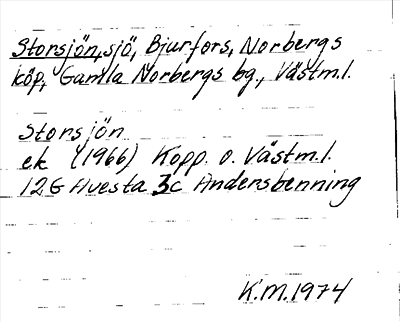 Storsjön, sjö, Bjurfors, Norbergs
köp, Gamla Norbergs bg., Västm.l.
Storsjön
ek (1966) Kopp. o. Västm.l.
12G Avesta 3c Andersbenning
K.M. 1974